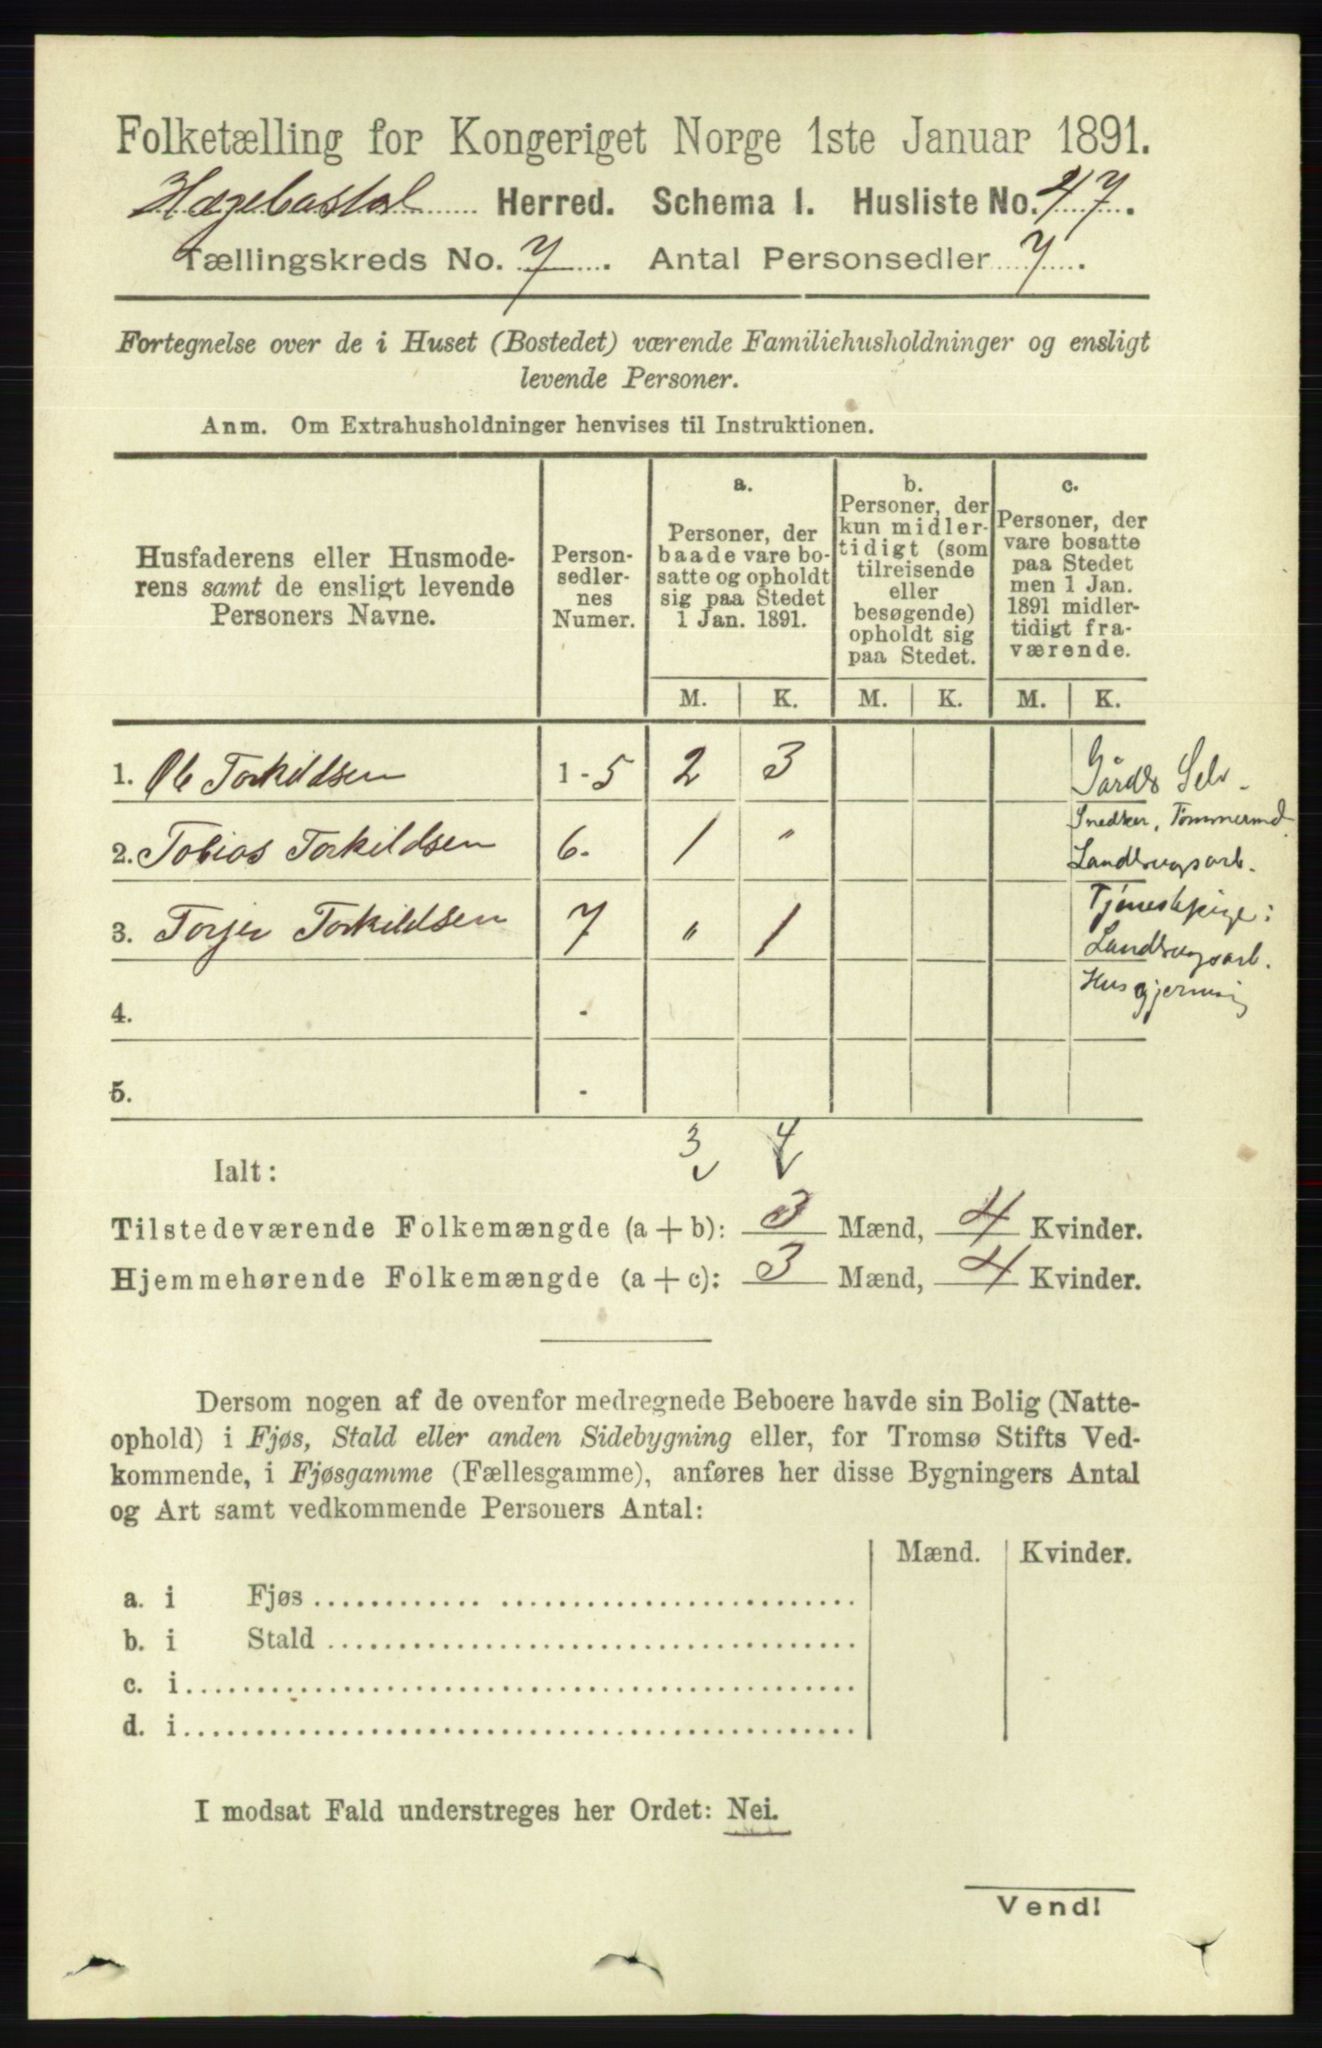 Folketælling for Kongeriget Norge 1ste Januar 1891.
Hægebostad Herred. Schema I. Husliste No. 47.
Tællingskreds No. 7. Antal Personsedler 7.
Fortegnelse over de i Huset (Bostedet) værende Familiehusholdninger og ensligt
levende Personer.
Anm. Om Extrahusholdninger henvises til Instruktionen.
Husfaderens eller Husmode-
rens samt de ensligt levende
Personers Navne.
Person-
sedler-
nes
Numer.
a.
Personer, der
baade vare bo-
satte og opholdt
sig paa Stedet
1 Jan. 1891.
b.
Personer, der
kun midler-
tidigt (som
tilreisende
eller
besøgende)
opholdt sig
paa Stedet.
c.
Personer, der
vare bosatte
paa Stedet
men 1 Jan.
1891 midler-
tidigt fra-
værende.
M. K. M. K. M. K.
1. Ole Torkildsen 1 - 5 2 3
2. Tobias Torkildsen 6. 1 "
3. Torjer Torkildsen 7 " 1
4. -
5. -
Gårdb Selv -
Snedker, Tømmermd.
Landbrugsarb.
Tjenestepige i
Landbrugsarb.
Husgjerning
3 4
Ialt:
Tilstedeværende Folkemængde (a + b): 3 Mænd, 4 Kvinder.
Hjemmehørende Folkemængde (a + c): 3 Mænd, 4 Kvinder.
Dersom nogen af de ovenfor medregnede Beboere havde sin Bolig (Natte-
ophold) i Fjøs, Stald eller anden Sidebygning eller, for Tromsø Stifts Ved-
kommende, i Fjøsgamme (Fællesgamme), anføres her disse Bygningers Antal
og Art samt vedkommende Personers Antal:
Mænd. Kvinder.
a. i Fjøs
b. i Stald
c. i
d. i
I modsat Fald understreges her Ordet: Nei.
Vend!